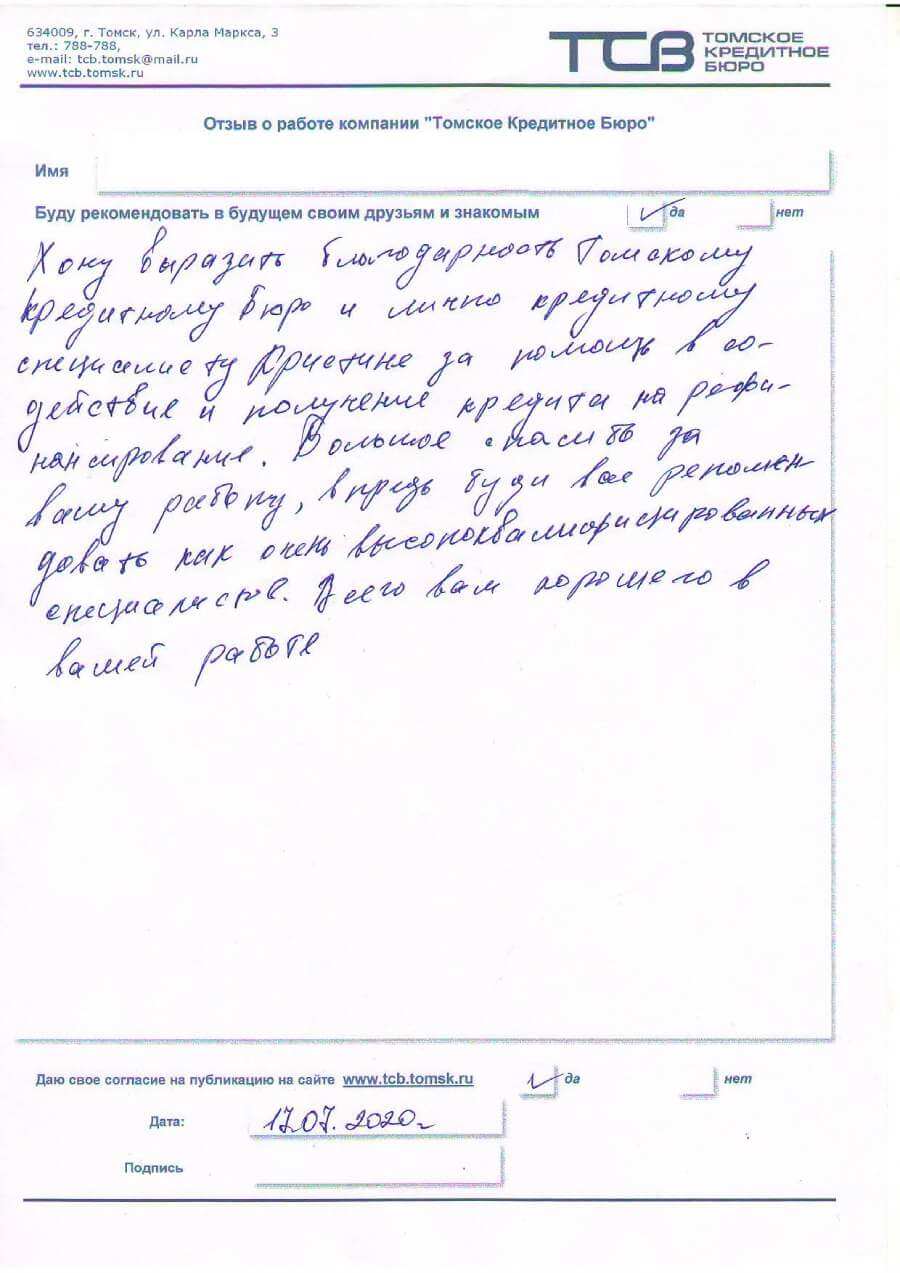 634009, г. Томск, ул. Карла Маркса, 3
тел.: 788-788,
e-mail: tcb.tomsk@mail.ru
www.tcb.tomsk.ru
ТСВ ТОМСКОЕ
КРЕДИТНОЕ
БЮРО
Отзыв о работе компании "Томское Кредитное Бюро"
Имя
Буду рекомендовать в будущем своим друзьям и знакомым да нет
Хочу выразить благодарность Томскому
кредитному Бюро и лично кредитному
специалисту Кристине за помощь в со-
действие и получение кредита на рефи-
нансирование. Большое спасибо за
вашу работу, впредь буду вас рекомен-
довать как очень высококвалифицированных
специалистов. Всего вам хорошего в
вашей работе
Даю свое согласие на публикацию на сайте www.tcb.tomsk.ru да нет
Дата: 17.07.2020г
Подпись